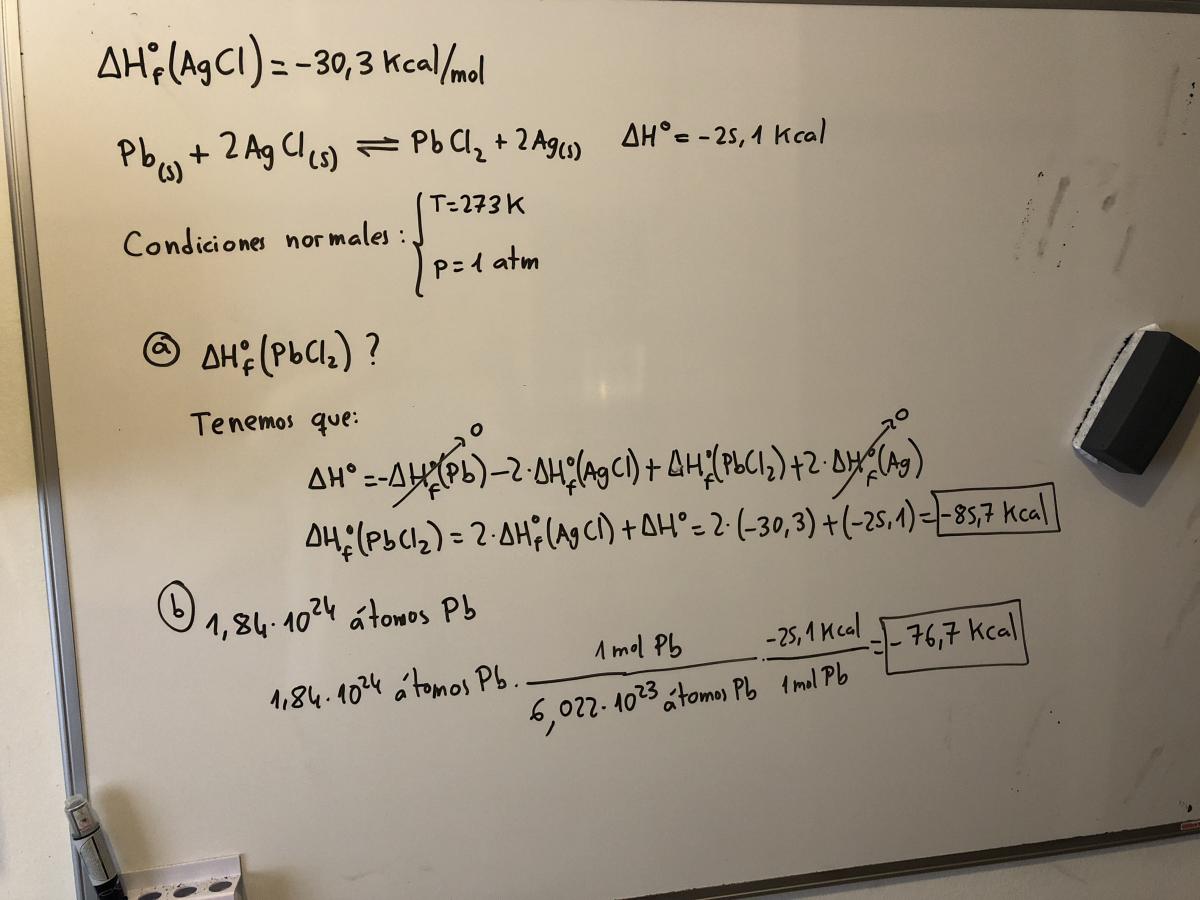 ΔH°f(AgCl) = -30,3 Kcal/mol
Pb(s) + 2AgCl(s) ⇌ PbCl₂ + 2Ag(s) ΔH° = -25,1 Kcal
Condiciones normales: { T=273 K
P=1 atm
ⓐ ΔH°f(PbCl₂)?
Tenemos que:
ΔH° = -ΔH°f(Pb)↗0 - 2·ΔH°f(AgCl) + ΔH°f(PbCl₂) + 2·ΔH°f(Ag)↗0
ΔH°f(PbCl₂) = 2·ΔH°f(AgCl) + ΔH° = 2·(-30,3) + (-25,1) = -85,7 Kcal
ⓑ 1,84·10²⁴ átomos Pb
1,84·10²⁴ átomos Pb · 1 mol Pb / 6,022·10²³ átomos Pb · -25,1 Kcal / 1 mol Pb = -76,7 Kcal